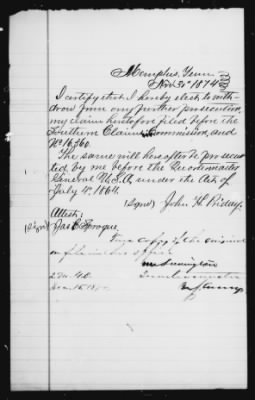 Memphis, Tenn
Nov 30 1874
I certify that I hereby elect to with-
draw from any further prosecution
my claim heretofore filed before the
Southern Claims Commission, and
No 16360.
The same will hereafter be prosecu-
ted by me before the Quartermaster
General U.S.A. under the Act of
July 4th 1864.
(Signed) John H
Attest:
(Signed) Jas E Sprague.
True Copy of the original
on file in this office